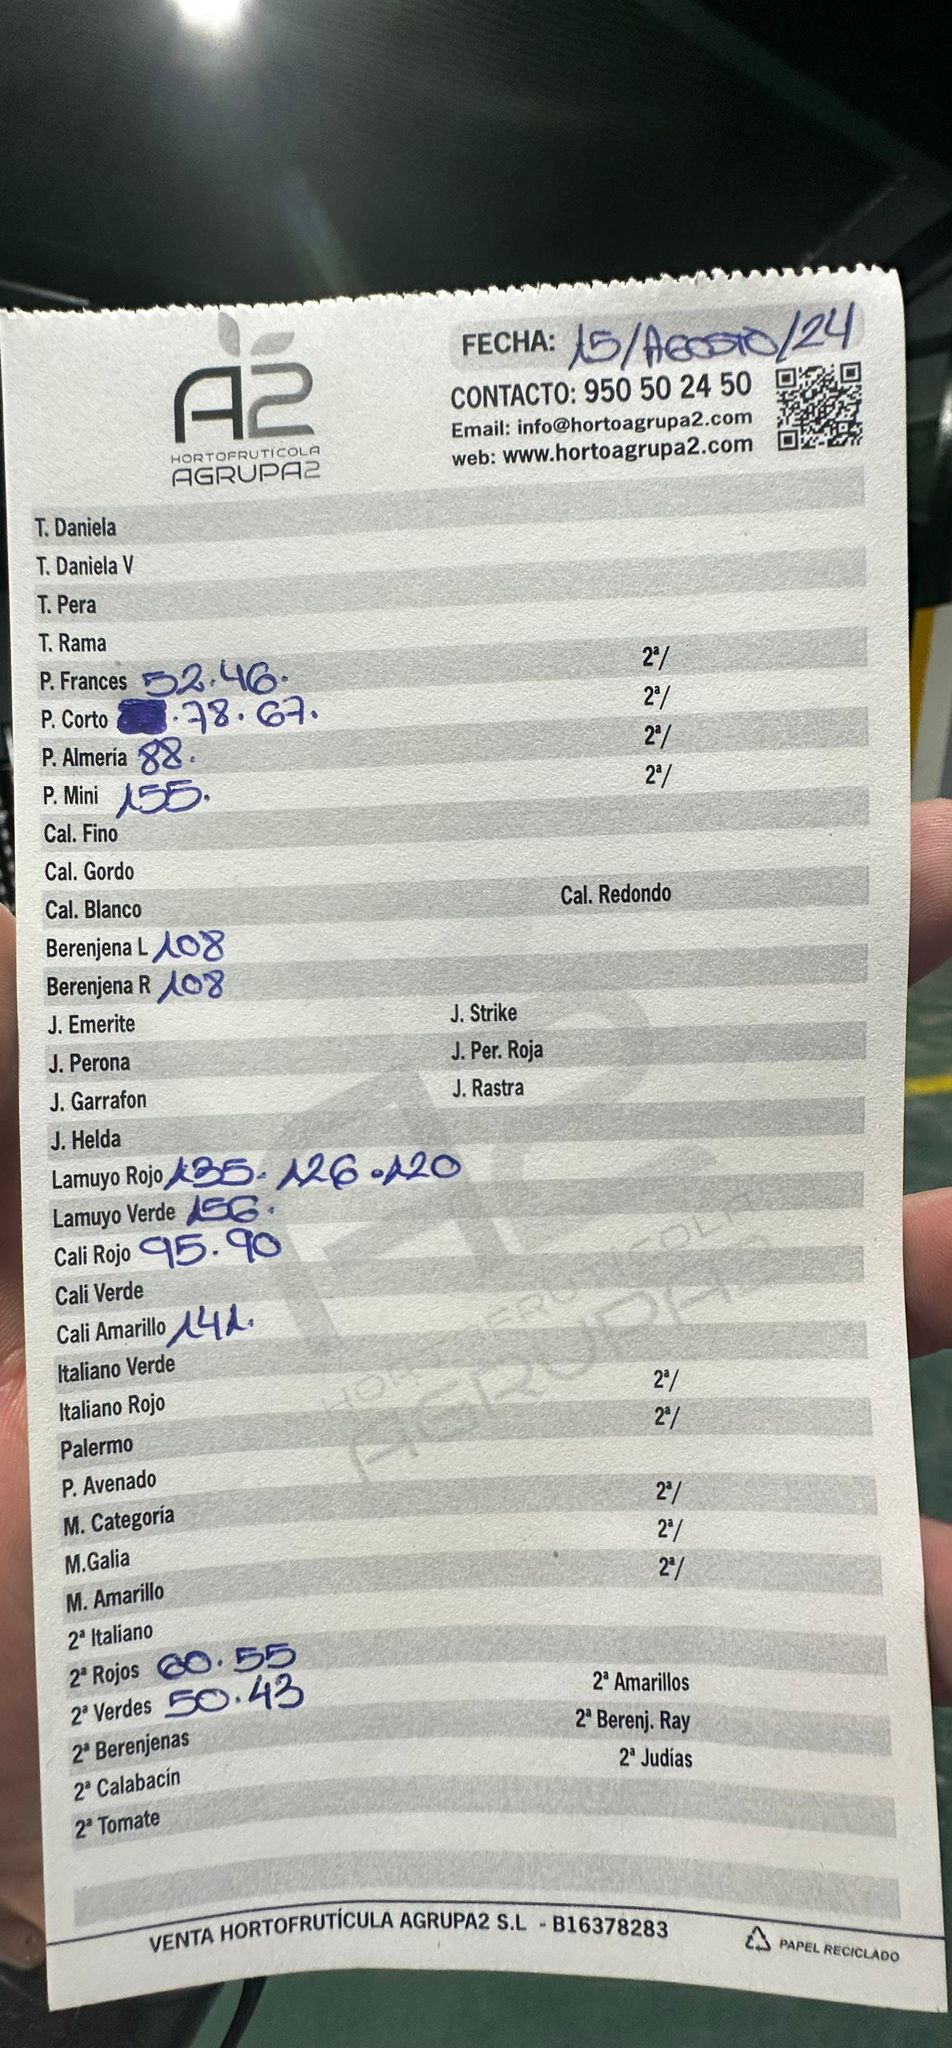 A2
HORTOFRUTÍCOLA
AGRUPA2
FECHA: 15/AGOSTO/24
CONTACTO: 950 50 24 50
Email: info@hortoagrupa2.com
web: www.hortoagrupa2.com
T. Daniela
T. Daniela V
T. Pera
T. Rama
P. Frances 52.46. 2ª/
P. Corto .78.67. 2ª/
P. Almería 88. 2ª/
P. Mini 155. 2ª/
Cal. Fino
Cal. Gordo
Cal. Blanco Cal. Redondo
Berenjena L 108
Berenjena R 108
J. Emerite J. Strike
J. Perona J. Per. Roja
J. Garrafon J. Rastra
J. Helda
Lamuyo Rojo 135.126.120
Lamuyo Verde 156.
Cali Rojo 95.90
Cali Verde
Cali Amarillo 141.
Italiano Verde
Italiano Rojo 2ª/
Palermo 2ª/
P. Avenado
M. Categoría 2ª/
M.Galia 2ª/
M. Amarillo 2ª/
2ª Italiano
2ª Rojos 60.55
2ª Verdes 50.43 2ª Amarillos
2ª Berenjenas 2ª Berenj. Ray
2ª Calabacín 2ª Judías
2ª Tomate
VENTA HORTOFRUTÍCULA AGRUPA2 S.L - B16378283
PAPEL RECICLADO